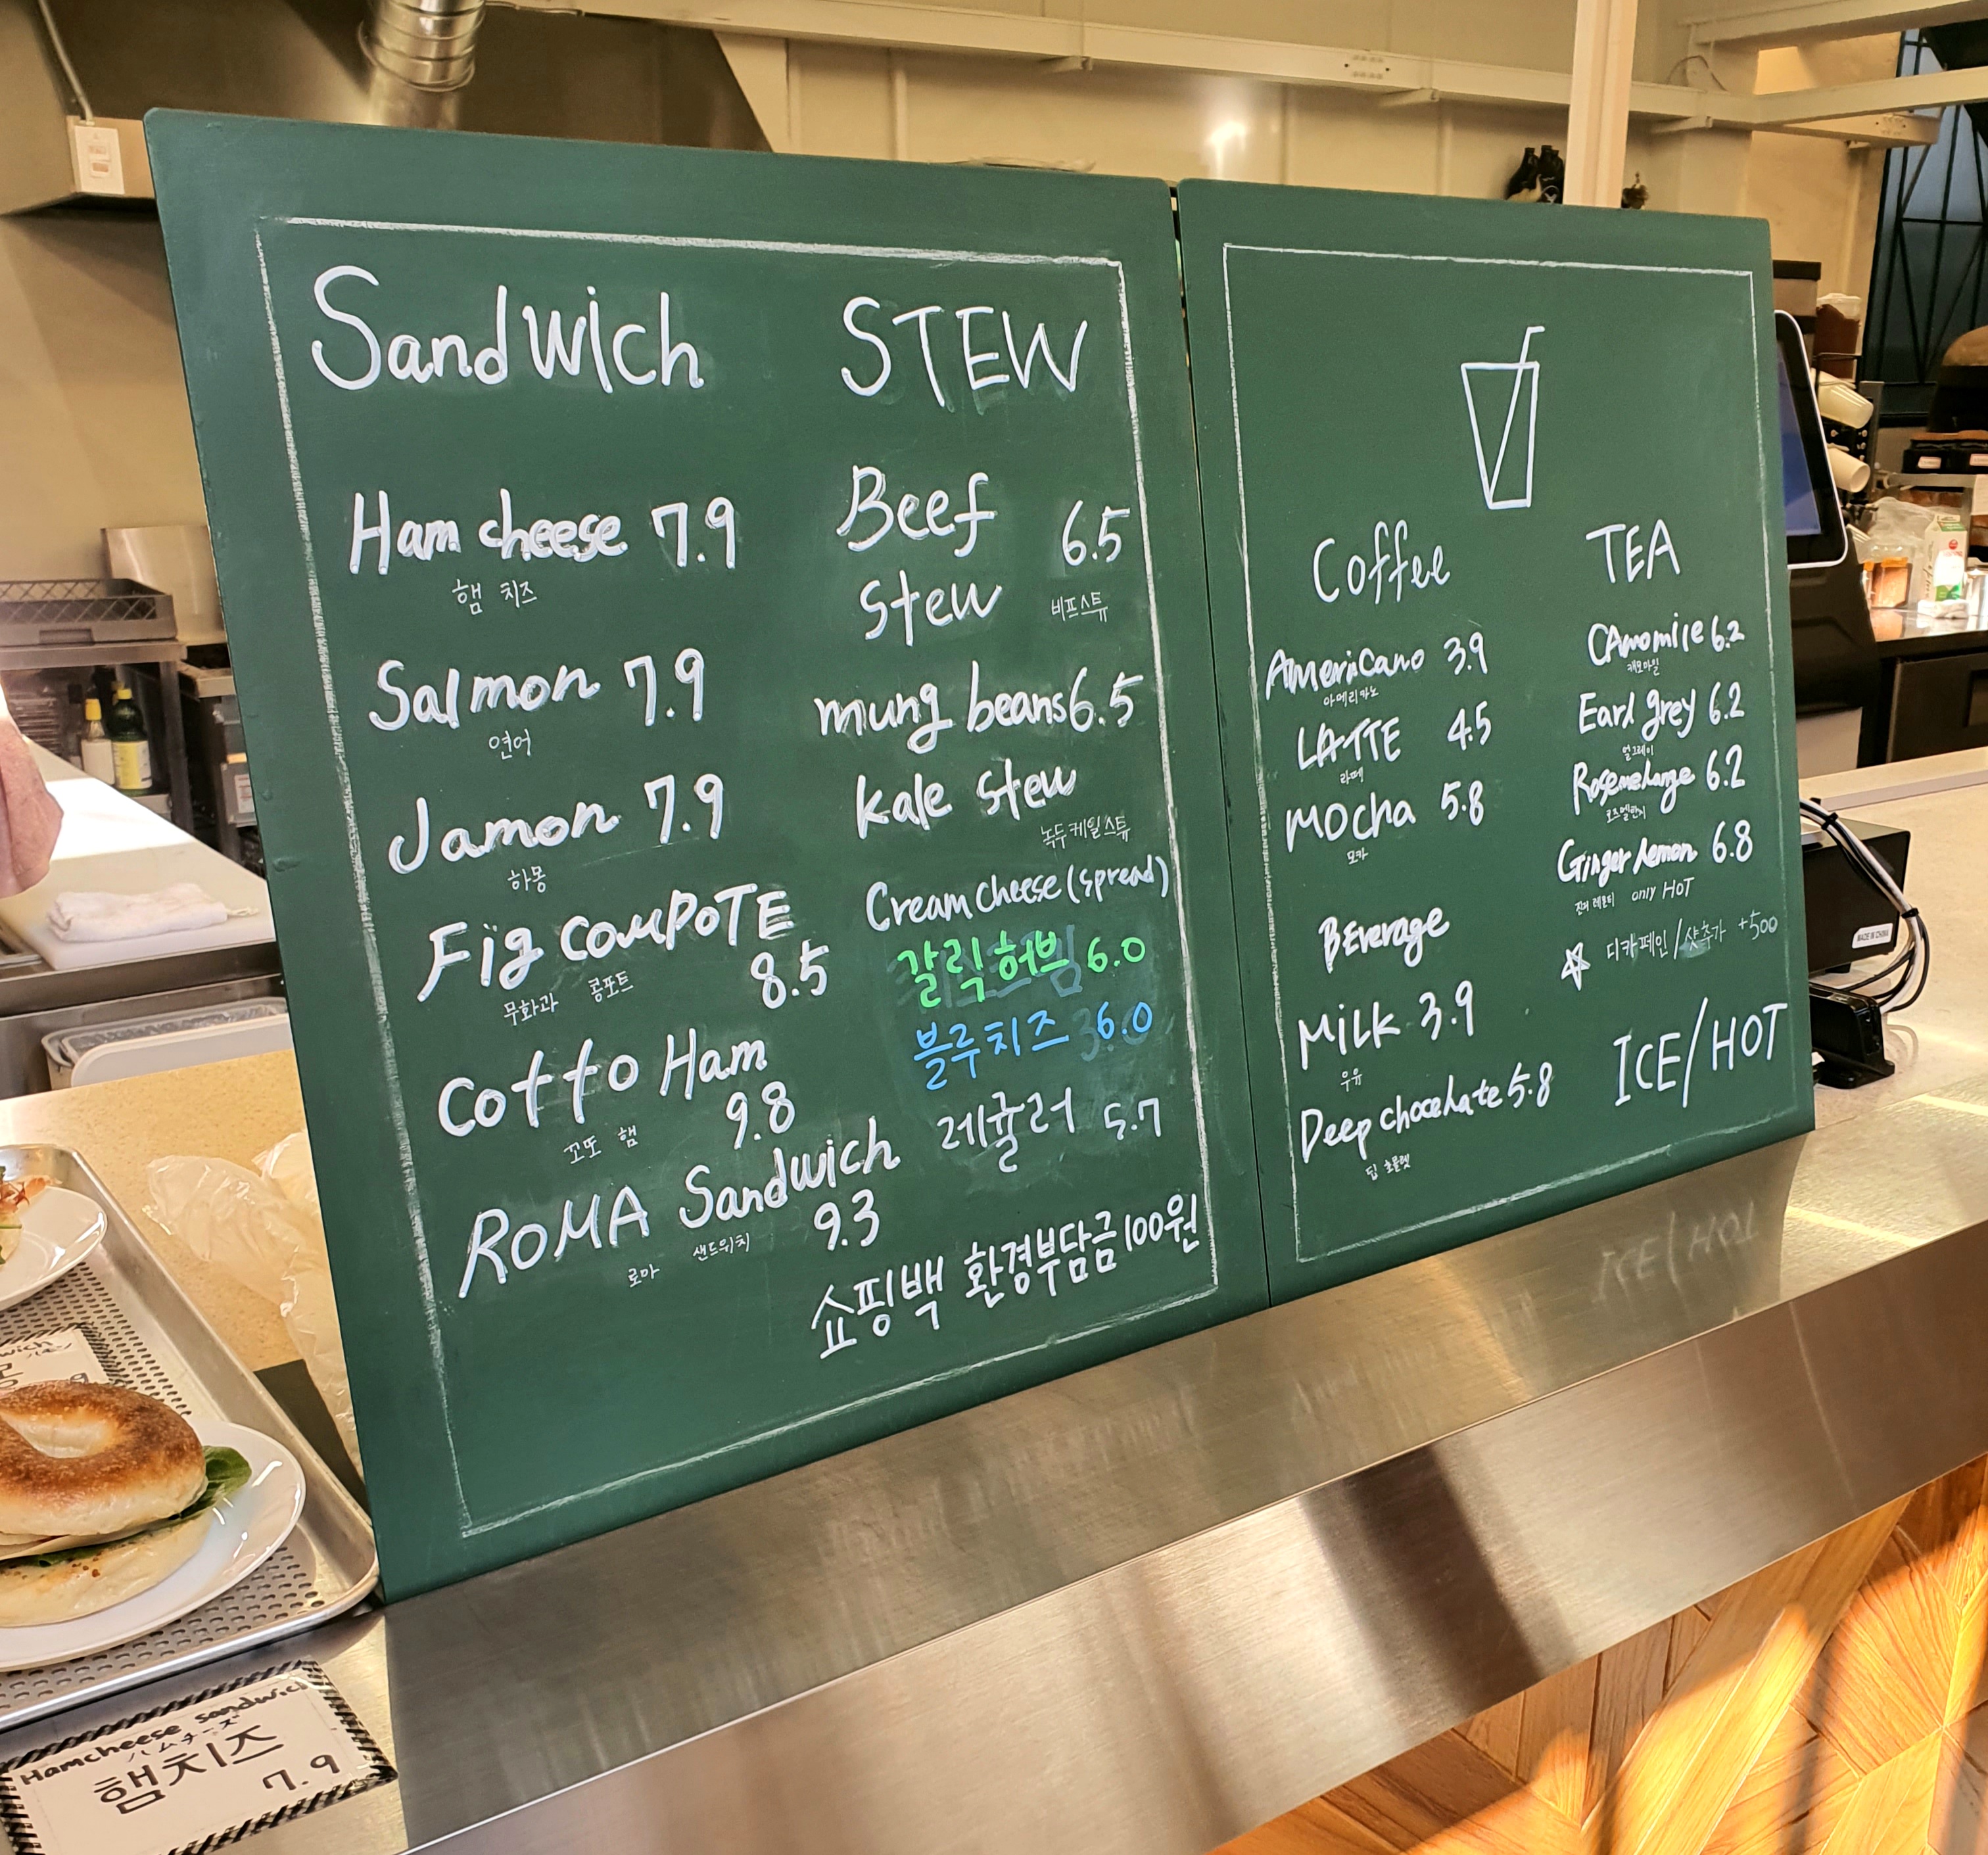 Sandwich
Ham cheese 7.9
햄 치즈
Salmon 7.9
연어
Jamon 7.9
하몽
Fig COMPOTE
8.5
무화과 콩포트
Cotto Ham
9.8
꼬또 햄
ROMA Sandwich
9.3
로마 샌드위치
STEW
Beef
6.5
stew
비프스튜
mung beans 6.5
kale stew
녹두케일스튜
Cream cheese (spread)
갈릭허브 6.0
블루치즈 6.0
레귤러 5.7
쇼핑백 환경부담금 100원
Coffee
AmeriCano 3.9
아메리카노
LATTE 4.5
라떼
MOcha 5.8
모카
BEverage
MiLK 3.9
우유
Deep chocolate 5.8
딥 초콜렛
TEA
CAmomile 6.2
캐모마일
Earl grey 6.2
얼그레이
Rosemelange 6.2
로즈멜란지
Ginger lemon 6.8
진저 레몬티 only HOT
☆ 디카페인/샷추가 +500
ICE/HOT
MADE IN CHINA
Hamcheese Sandwich
ハムチーズ
햄치즈
7.9